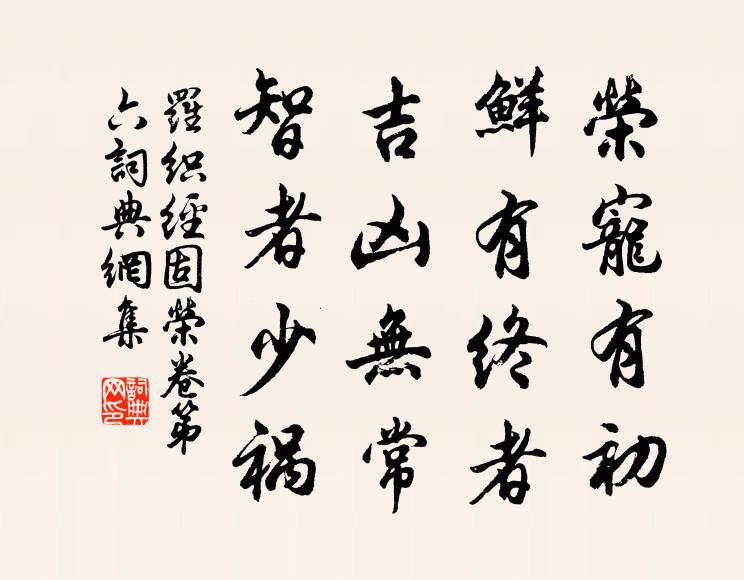 榮寵有初
鮮有終者
吉凶無常
智者少祸
羅织經固榮卷第
六詞典網集
詞典
网印